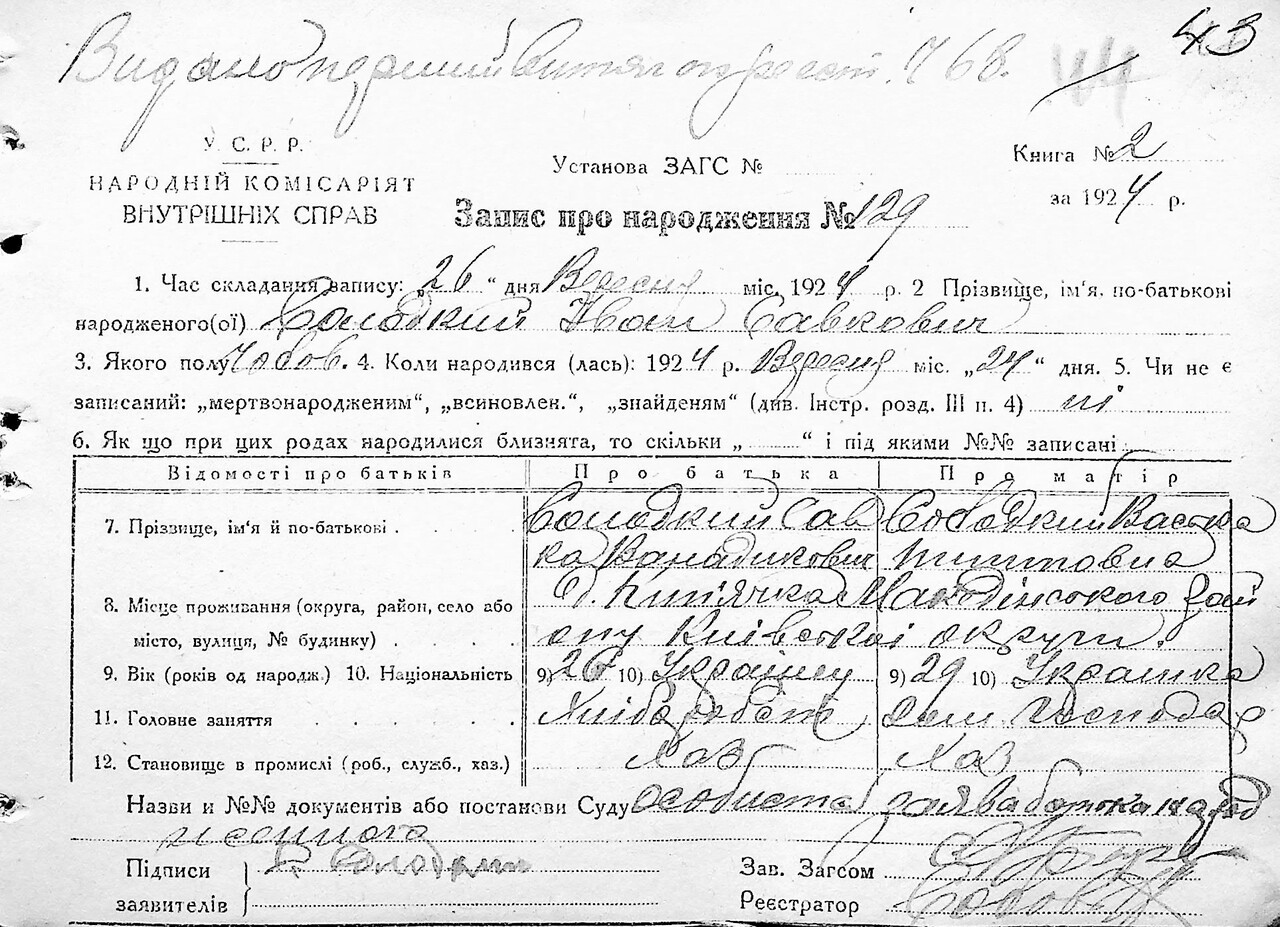 43
Видано перший витяг по реєст. 768.
44
У. С. Р. Р.
НАРОДНІЙ КОМІСАРІЯТ
ВНУТРІШНІХ СПРАВ
Установа ЗАГС №
Книга № 2
за 1924 р.
Запис про народження № 129
1. Час складання запису: „26“ дня Вересня міс. 1924 р. 2 Прізвище, ім'я, по-батькові
народженого(ої) Солодкий Іван Савкович
3. Якого полу Чолов. 4. Коли народився (лась): 1924 р. Вересня міс. „24“ дня. 5. Чи не є
записаний: „мертвонародженим“, „всиновлен.“, „знайденям“ (див. Інстр. розд. III п. 4) ні
6. Як що при цих родах народилися близнята, то скільки „ “ і під якими №№ записані
Відомості про батьків Про батька Про матір
7. Прізвище, ім'я й по-батькові Солодкий Сав Солодкий
ка Титовна
8. Місце проживання (округа, район, село або с. Кипячка рай
місто, вулиця, № будинку) ону Київської округи.
9. Вік (років од народж.) 10. Національність 9) 26 10) Українец 9) 29 10) Українка
11. Головне заняття Хлібороб Дом. Господар
12. Становище в промислі (роб., служб., хаз.) Хаз Хаз
Назви и №№ документів або постанови Суду особиста заява батька народ
женного
Підписи
заявителів
С. Солодкий
Зав. Загсом
Реєстратор